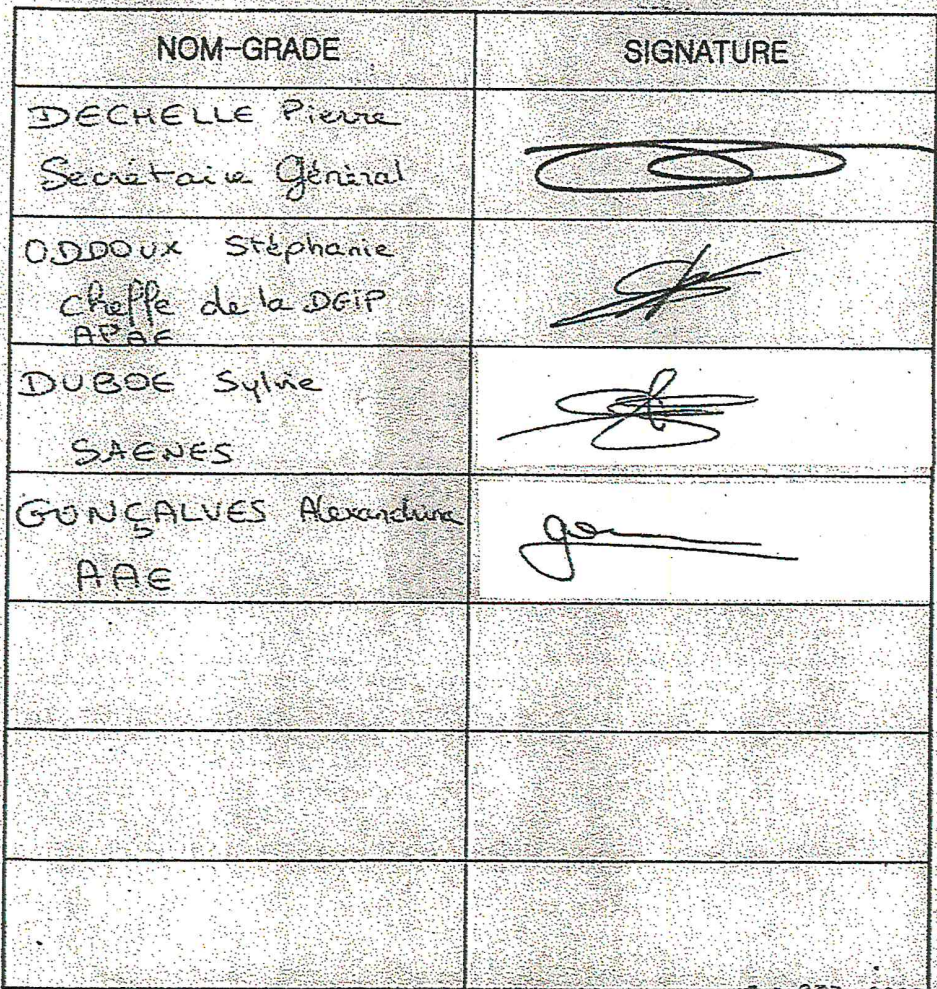 NOM-GRADE
SIGNATURE
DECHELLE Pierre
Secrétaire Général
ODDOUX Stéphanie
Cheffe de la DEIP
APAE
DUBOE Sylvie
SAENES
GONÇALVES Alexandrina
AAE